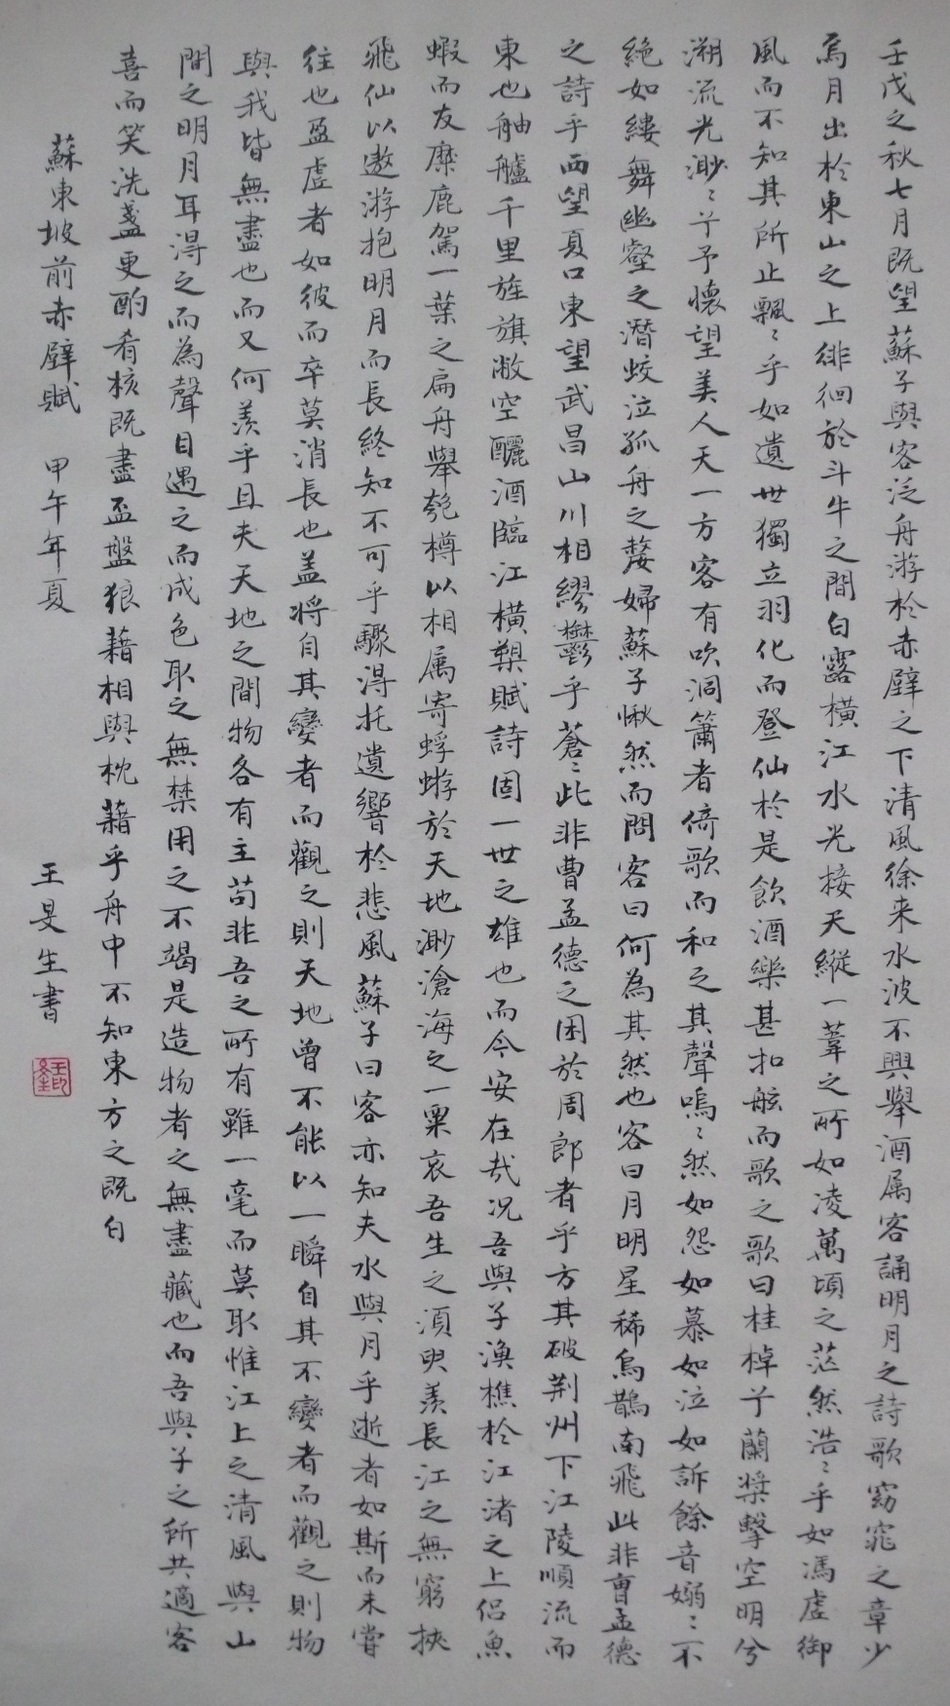 壬戌之秋七月既望蘇子與客泛舟游於赤壁之下清風徐来水波不興舉酒属客誦明月之詩歌窈窕之章少
焉月出於東山之上徘徊於斗牛之間白露橫江水光接天縱一葦之所如凌萬頃之茫然浩〻乎如馮虛御
風而不知其所止飄〻乎如遺世獨立羽化而登仙於是飲酒樂甚扣舷而歌之歌曰桂棹兮蘭槳擊空明兮
溯流光渺〻兮予懷望美人天一方客有吹洞簫者倚歌而和之其聲嗚〻然如怨如慕如泣如訴餘音嫋〻不
絕如縷舞幽壑之潛蛟泣孤舟之嫠婦蘇子愀然而問客曰何為其然也客曰月明星稀烏鵲南飛此非曹孟德
之詩乎西望夏口東望武昌山川相繆鬱乎蒼〻此非曹孟德之困於周郎者乎方其破荆州下江陵順流而
東也舳艫千里旌旗蔽空釃酒臨江橫槊賦詩固一世之雄也而今安在哉况吾與子漁樵於江渚之上侣魚
蝦而友麋鹿駕一葉之扁舟舉匏樽以相属寄蜉蝣於天地渺滄海之一粟哀吾生之須臾羨長江之無窮挾
飛仙以遨游抱明月而長終知不可乎驟得托遺響於悲風蘇子曰客亦知夫水與月乎逝者如斯而未嘗
往也盈虛者如彼而卒莫消長也盖將自其變者而觀之則天地曾不能以一瞬自其不變者而觀之則物
與我皆無盡也而又何羨乎且夫天地之間物各有主苟非吾之所有雖一毫而莫取惟江上之清風與山
間之明月耳得之而為聲目遇之而成色取之無禁用之不竭是造物者之無盡藏也而吾與子之所共適客
喜而笑洗盞更酌肴核既盡盃盤狼藉相與枕藉乎舟中不知東方之既白
蘇東坡前赤壁賦 甲午年夏
王旻生書